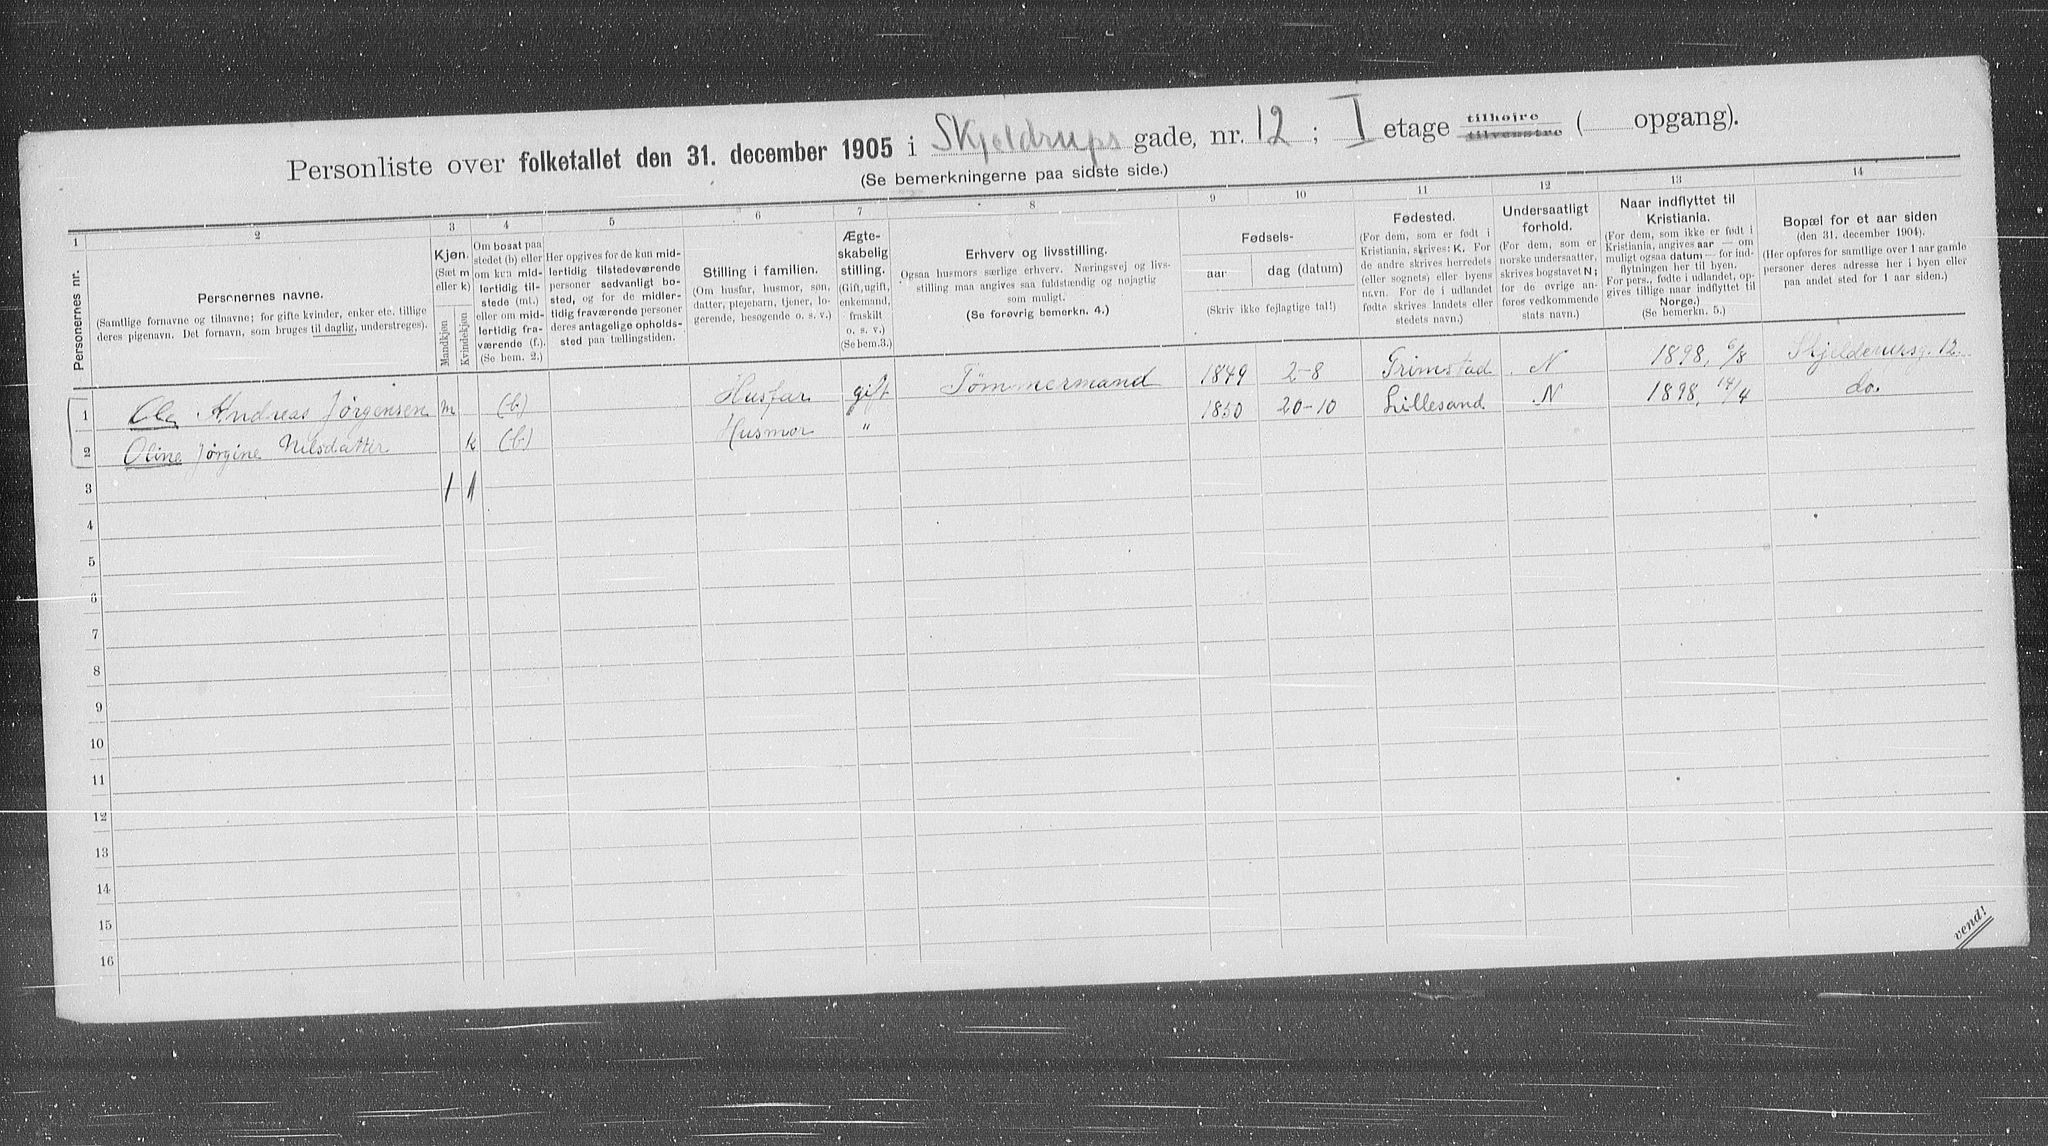 Personliste over folketallet den 31. december 1905 i Skjeldrups gade, nr. 12 ; I etage tilhøjre tilvenstre ( opgang).
(Se bemerkningerne paa sidste side.)
1 2 3 4 5 6 7 8 9 10 11 12 13 14
Personernes nr.
Personernes navne.
(Samtlige fornavne og tilnavne; for gifte kvinder, enker etc. tillige
deres pigenavn. Det fornavn, som bruges til daglig, understreges).
Kjøn.
(Sæt m
eller k)
Mandkjøn
Kvindekjøn
Om bosat paa
stedet (b) eller
om kun mid-
lertidig til-
stede (mt.)
eller om mid-
lertidig fra-
værende (f.).
(Se bem. 2.)
Her opgives for de kun mid-
lertidig tilstedeværende
personer sedvanligt bo-
sted, og for de midler-
tidig fraværende personer
deres antagelige opholds-
sted paa tællingstiden.
Stilling i familien.
(Om husfar, husmor, søn,
datter, plejebarn, tjener, lo-
gerende, besøgende o. s. v.)
Ægte-
skabelig
stilling.
(Gift, ugift,
enkemand,
fraskilt
o. s. v.)
(Se bem. 3.)
Erhverv og livsstilling.
Ogsaa husmors særlige erhverv. Næringsvej og livs-
stilling maa angives saa fuldstændig og nøjagtig
som muligt.
(Se forøvrig bemerkn. 4.)
Fødsels-
aar dag (datum)
(Skriv ikke fejlagtige tal!)
Fødested.
(For dem, som er født i
Kristiania, skrives: K. For
de andre skrives herredets
(eller sognets) eller byens
navn. For de i udlandet
fødte skrives landets eller
stedets navn.)
Undersaatligt
forhold.
(For dem, som er
norske undersaatter,
skrives bogstavet N;
for de øvrige an-
føres vedkommende
stats navn.)
Naar indflyttet til
Kristiania.
(For dem, som ikke er født i
Kristiania, angives aar — om
muligt ogsaa datum — for ind-
flytningen her til byen.
For pers., fødte i udlandet, op-
gives tillige naar indflyttet til
Norge.)
(Se bemerkn. 5.)
Bopæl for et aar siden
(den 31. december 1904).
(Her opføres for samtlige over 1 aar gamle
personer deres adresse her i byen eller
paa andet sted for 1 aar siden.)
1 Ole Andreas Jørgensen m (b) Husfar gift Tømmermand 1849 2-8 Grimstad N 1898, 6/8 Skjelderupsg. 12.
2 Oline Jørgine Nilsdatter k (b) Husmor " 1850 20-10 Lillesand N 1898, 14/4 do.
3 1 1
4
5
6
7
8
9
10
11
12
13
14
15
16
vend!